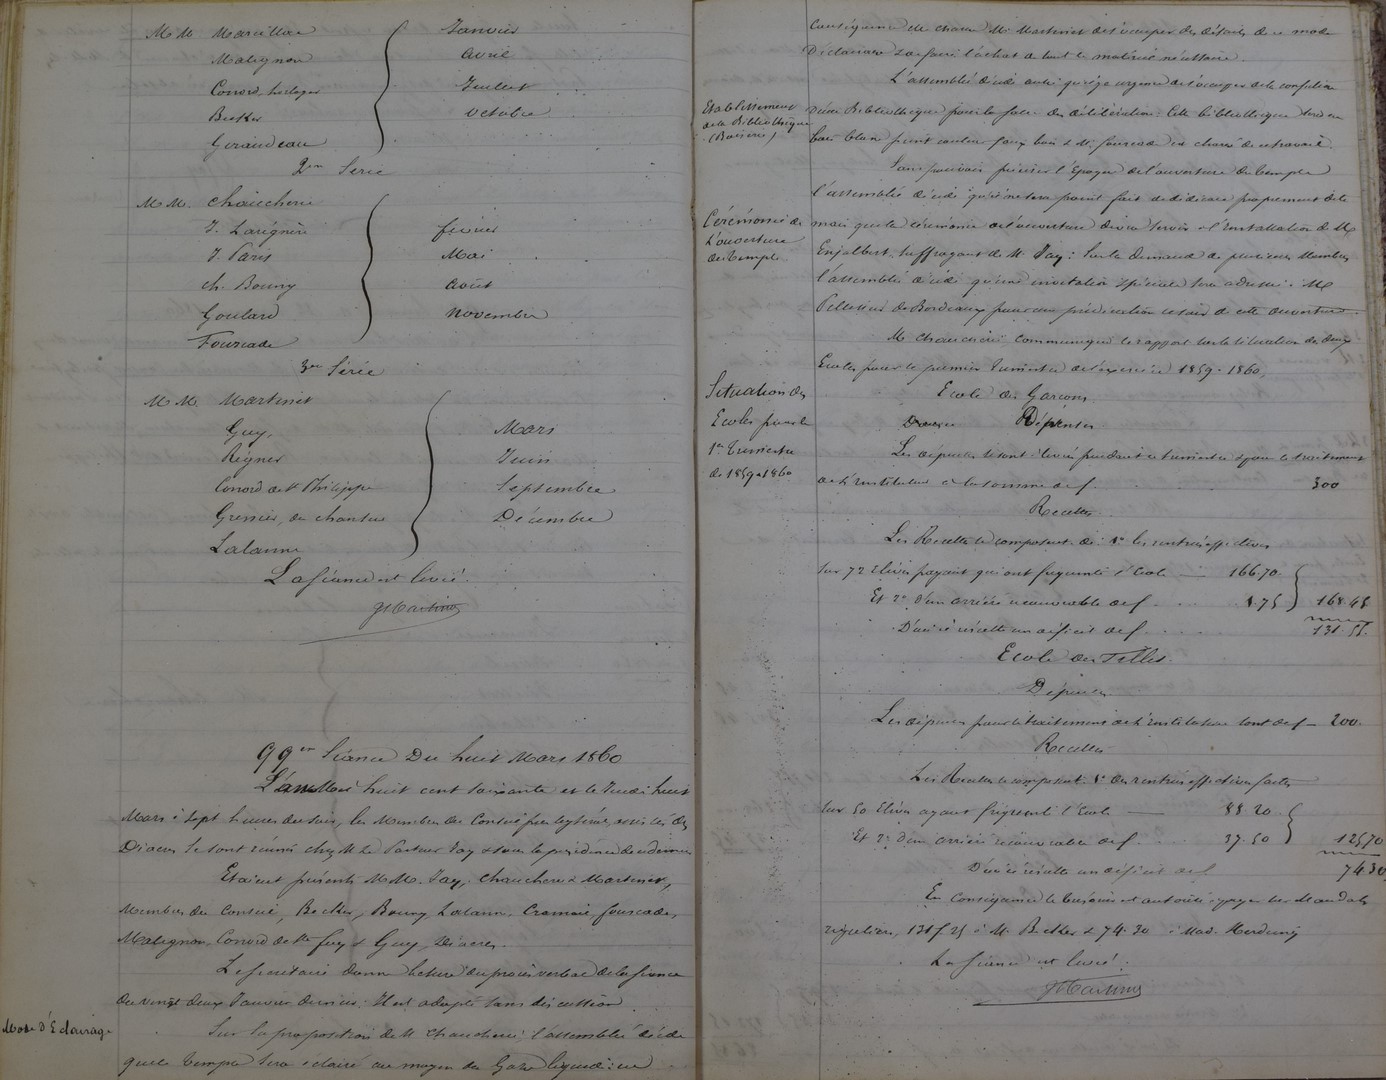 M M Marcillac Janvier
Malignon Avril
Conord, horloger Juillet
Becker Octobre
Giraudeau
2me Série
M M. Chaucherie
J. Larégnère février
J. Paris Mai
ch. Bouny Août
Goulard Novembre
Fourcade
3me Série
M M. Martinet
Guy, Mars
Régner Juin
Conord de St Philippe Septembre
Grenier, du chantier Décembre
Lalanne
La Séance est levée.
JMartinet
99me Séance Du huit Mars 1860
L'an Mil huit cent soixante et le Jeudi huit
Mars à sept heures du soir, les Membres du Conseil presbytéral assistés des
Diacres se sont réunis chez M. le Pasteur Jay & sous la présidence de ce dernier
Etaient présents M M. Jay, Chaucherie & Martinet,
Membres du Conseil, Becker, Bouny, Lalanne, fourcade,
Malignon, Conord de Ste foy & Guy, Diacres.
Le secrétaire donne lecture du procès verbal de la séance
du vingt deux Janvier dernier. Il est adopté sans discussion
Mode D'Eclairage
Sur la proposition de M Chaucherie, l'assemblée décide
que le Temple sera éclairé au moyen du Gaz liquide: en
conséquence elle charge M. Martinet de s'occuper des détails de ce mode
D'éclairage & de faire l'achat de tout le matériel nécessaire.
L'assemblée décide aussi qu'il y a urgence de s'occuper de la confection
Etablissement
de la Bibliothèque
(Boiserie)
d'une Bibliothèque pour la salle des délibérations. Cette bibliothèque sera en
bois blanc peint couleur faux bois & M. fourcade est chargé de ce travail.
Sans pouvoir préciser l'Epoque de l'ouverture du Temple
l'assemblée décide qu'il ne sera point fait de dédicace proprement dite
Cérémonie de
L'ouverture
du Temple
mais que la cérémonie de l'ouverture devra servir à l'Installation de M.
Enjalbert, suffragant de M. Jay: Sur la demande de plusieurs Membres
l'assemblée décide qu'une invitation spéciale sera adressée à M.
Pellissier de Bordeaux pour une prédication le soir de cette ouverture.
M Chaucherie communique le rapport sur la situation des deux
Ecoles pour le premier Trimestre de l'exercice 1859-1860.
Situation des
Ecoles pour le
1er Trimestre
de 1859 à 1860
Ecole de Garçons
Dépenses
Les dépenses se sont élevées pendant ce trimestre & pour le traitement
de l'Instituteur à la somme de f. 300
Recettes
Les Recettes se composent de: 1° les rentrées effectives
sur 72 Elèves payant qui ont fréquenté l'Ecole — 166.70
Et 2° d'un arriéré recouvrable de f. 1.75 168.45
D'où il résulte un déficit de f. 131.55.
Ecole des Filles
Dépenses
Les dépenses pour le traitement de l'Institutrice sont de f — 200.
Recettes
Les Recettes se composent: 1° des rentrées effectives faites
sur 50 Elèves ayant fréquenté l'Ecole — 88 20
Et 2° d'un arriéré recouvrable de f. 37.50 125 70
D'où il résulte un déficit de f 74 30
En conséquence le Trésorier est autorisé à payer sur Mandats
réguliers, 131f 25 à M. Becker & 74.30 à Mad.
La Séance est levée.
JMartinet